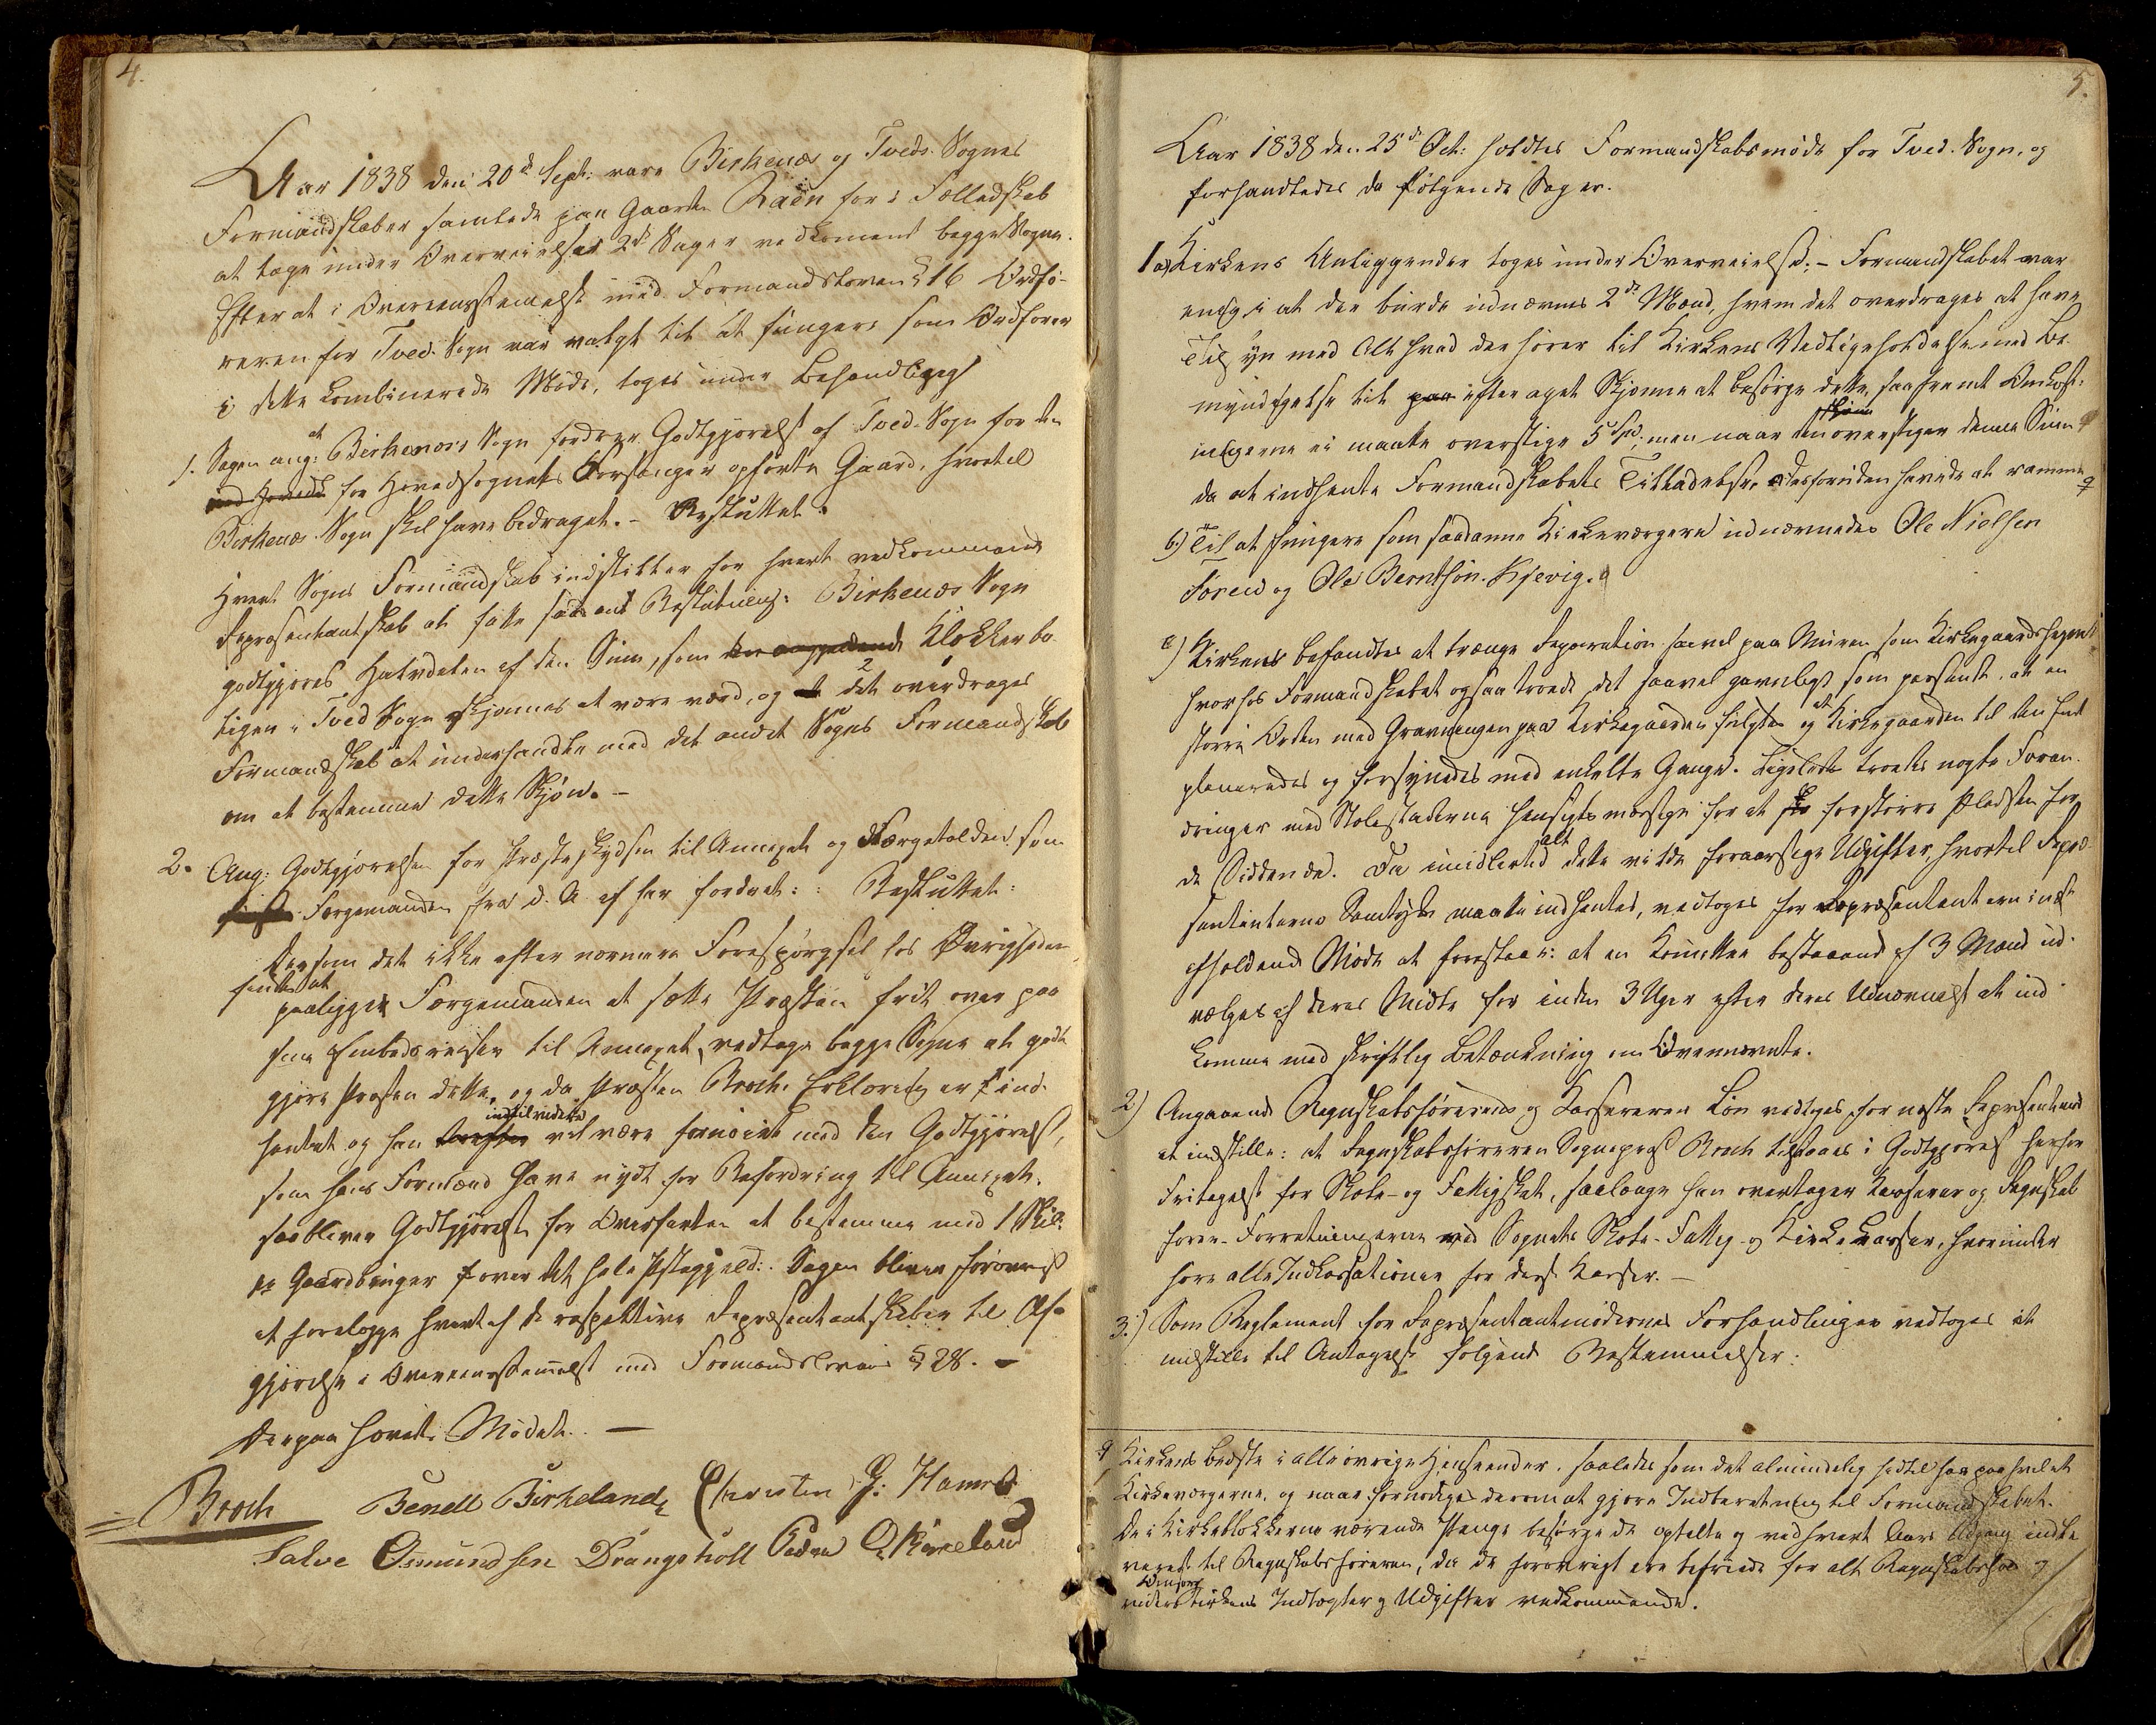 4.
Aar 1838 den 20de Sept: vare Birkenæs og Tveds Sognes
Formandskaber samlede paa Gaarden Raen for i Fælledskab
at tage under Overveielse 2de Sager vedkomend begge Sogne.
Efter at i Overeensstemelse med Formandsloven § 16 Ordfø-
reren for Tved Sogn var valgt til at fungere som Ordfører
i dette kombinerede Møde, toges under Behandling
1. Sagen ang: at Birkenæs Sogn fordrer Godtgjørelse af Tved Sogn for den
for Hovedsognets Forsanger opførte Gaard, hvortil
Birkenæs Sogn skal have bidraget. – Besluttet:
Hvert Sogns Formandskab indstiller for hvert vedkommende
Repræsentantskab at fatte saadant Beslutning: Birkenæs Sogn
godtgjøres Halvdelen af den Sum, som den angjældende Klokkerbo
ligen i Tved Sogn skjønnes at være værd, og det overdrages
Formandskab at underhandle med det andet Sogns Formandskab
om at bestemme dette Skjøn. –
2. Ang: Godtgjørelsen for Præsteskydsen til Annexet og Færgeholdet som
Færgemanden fra d. A. af har fordret: Besluttet:
Dersom det ikke efter nærmere Forespørgsel hos Øvrigheden
findes at
paaligge Færgemanden at sætte Præsten frit over paa
sine Embedsreiser til Annexet, vedtage begge Sogne at godt
gjøre Præsten dette, og da Præsten Brochs Erklæring er ind-
hentet og han vil være fornøiet med den Godtgjørelse,
som hans Formænd have nydt for Befordring til Annexet,
saa bliver Godtgjørelse for Overfarten at bestemme med 1 Skil:
pr Gaardbruger over det hele Præstegjeld: Sagen bliver forøvrigt
at forelægge hvert af de respektive Repræsentantskaber til Af-
gjørelse i Overeensstemmelse med Formandsloven § 28. –
Derpaa hævet Mødet. –
Broch Bendt Birkeland Christen G: Hamre
Salve Osmundsen Drangsholt Peder O. Birkeland
5.
Aar 1838 den 25de Oct: holdtes Formandskabsmøde for Tved Sogn, og
forhandledes da følgende Sager.
1 a) Kirkens Anliggender toges under Overveielse. – Formandskabet var
enig i at der burde udnævnes 2de Mænd, hvem det overdrages at have
Tilsyn med Alt hvad der hører til Kirkens Vedligeholdelse med Be-
myndigelse til paa efter eget Skjønne at besørge dette, saafremt Omkost-
ningerne ei maatte overstige 5 Spd. men naar den overstiger denne Sum
da at indhente Formandskabets Tilladelse, desforuden havde at varetage
b) Til at fungere som saadanne Kirkeværgere udnævnedes Ole Nielsen
Foreid og Ole Berntsøn Kjevig.
c) Kirken befandtes at trænge Reparation saavel paa Muren som Kirkegaardshegnet
hvorhos Formandskabet ogsaa troede det saavel gavnligt som passende, at en
større Orden med Gravningen paa Kirkegaarden fulgtes og at Kirkegaarden til den Ende
planeredes og forsynedes med enkelte Gange. Ligeledes troedes nogle Foran-
dringer med Stolestaderne hensigtsmæssige for at forstørre Pladsen for
de Siddende. Da imidlertid alt dette vilde foraarsage Udgifter, hvortil Repræ-
sentanternes Samtykke maatte indhentes, vedtoges for Repræsentanterne i næst
afholdende Møde at foreslaae: at en Komittee bestaaende af 3 Mænd ud-
vælges af deres Midte for inden 3 Uger efter deres Udnævnelse at ind-
komme med skriftlig Betænkning om Ovennævnte.
2) Angaaende Regnskabsførerens og Kassererens Løn vedtoges, for næste Repræsentantmøde
at indstille: at Regnskabsføreren Sognepræst Broch tilstaaes i Godtgjørelse herfor
Fritagelse for Skole- og Fattigskat, saalænge han overtager Kasserer og Regnskab
fører-Forretningerne ved Sognets Skole-Fattig- og Kirkekasser, hvorunder
høre alle Indkassationer for disse Kasser. –
3.) Som Reglement for Repræsentantmødernes Forhandlinger vedtoges at
indstille til Antagelse følgende Bestemmelser:
Kirkens bedste i alle øvrige Henseender, saaledes som det almindelig hidtil har paahvilet
Kirkeværgerne, og naar fornødiges derom at gjøre Indberetning til Formandskabet.
De i Kirkeblokkerne værende Penge besørge de optelte og ved hvert Aars Udgang indle-
veret til Regnskabsføreren, da de forøvrigt ere befriede for alt Regnskabshold og
videre Omsorg Kirkens Indtægter og Udgifter vedkommende.